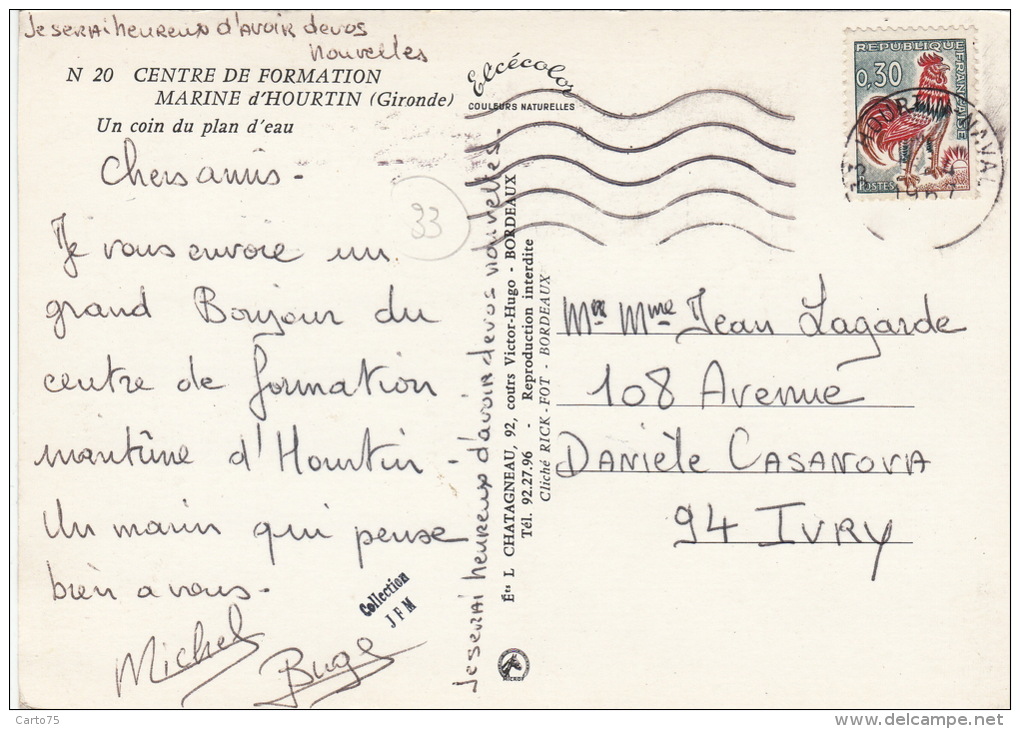 Je serai heureux d'avoir de vos
nouvelles
N 20 CENTRE DE FORMATION
MARINE d'HOURTIN (Gironde)
Un coin du plan d'eau
Chers amis -
Je vous envoie un
grand Bonjour du
centre de formation
maritime d'Hourtin -
Un marin qui pense
bien a vous -
Michel
Buge
33
Collection
JFM
Elcécolor
COULEURS NATURELLES
Je serai heureux d'avoir de vos nouvelles -
Éts L CHATAGNEAU, 92, cours Victor-Hugo - BORDEAUX
Tél. 92.27.96 - Reproduction interdite
Cliché RICK-FOT - BORDEAUX
REPUBLIQUE
FRANÇAISE
0,30
POSTES
HOURTIN NAVAL
Mr Mme Jean Lagarde
108 Avenue
Danièle CASANOVA
94 IVRY
Carto75
www.delcampe.net